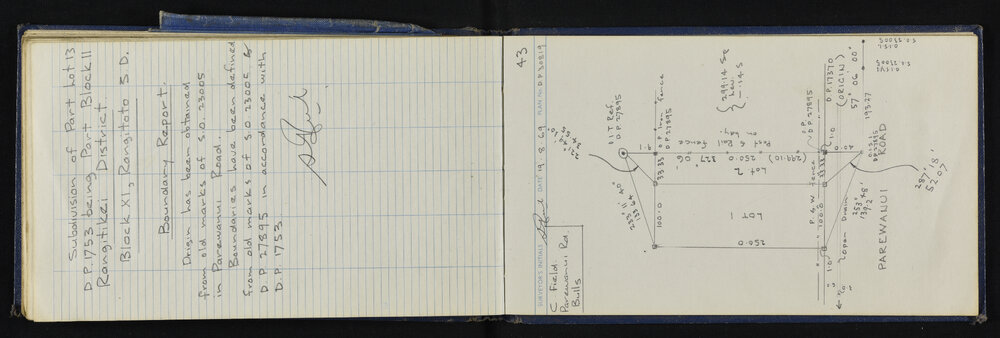 Subdivision of Part Lot 13
D.P. 1753 being Part Block II
Rangitikei District
Block XI, Rangitoto S D.
Boundary Report.
Origin has been obtained
from old marks of S.O. 23005
in Parewanui Road.
Boundaries have been defined
from old marks of S.O. 23005 &
D P 27895 in accordance with
D P. 1753
43
SURVEYOR'S INITIALS
DATE 19 8 69
PLAN No. D P 30819
C Field
Parewanui Rd.
Bulls
D I T Ref.
D P. 27895
O.P. Iron fence
D.P. 27895
Post & Rail
fence
250.0 327 06
(299.10)
LOT 2
LOT 1
33.35
100.0
250.0
233 11 40
P. & W fence
33.35
100.0
1.0
40.0
I.P.
D.P. 27895
D.P. 17370
(ORIGIN)
57 06 00
193.27
Open Drain
253° 48'
139.2
287° 18'
52 07
PAREWANUI
ROAD
S.O. 23005
S.O. 23005